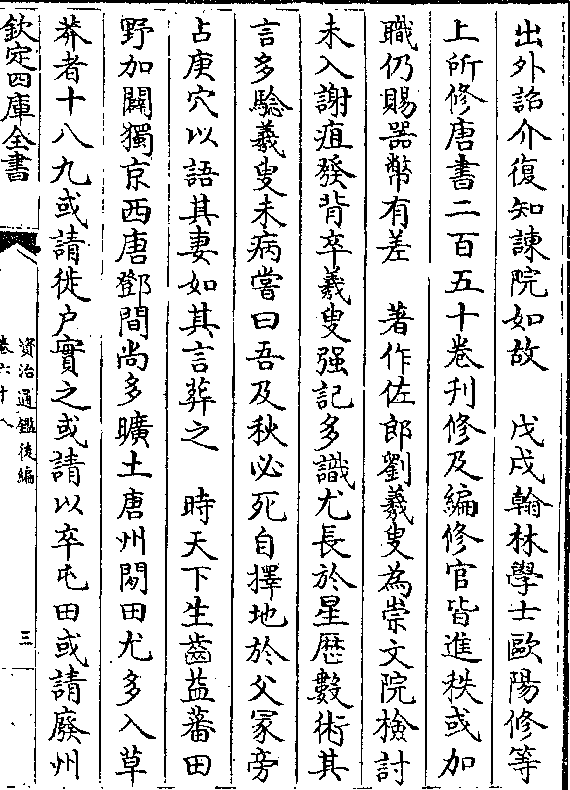 出外詔介復知諫院如故　戊戌翰林學士歐陽修等
上所修唐書二百五十卷刊修及編修官皆進秩或加
職仍賜器幣有差　著作佐郎劉羲叟為崇文院檢討
未入謝疽發背卒羲叟强記多識尤長於星厯數術其
言多驗羲叟未病嘗曰吾及秋必死自擇地於父冢旁
占庚穴以語其妻如其言葬之　時天下生齒益蕃田
野加闢獨京西唐鄧間尚多曠土唐州閑田尤多入草
莽者十八九或請徙户實之或請以卒屯田或請廢州
欽定四庫全書
資治通鑑後編
卷六十八
三